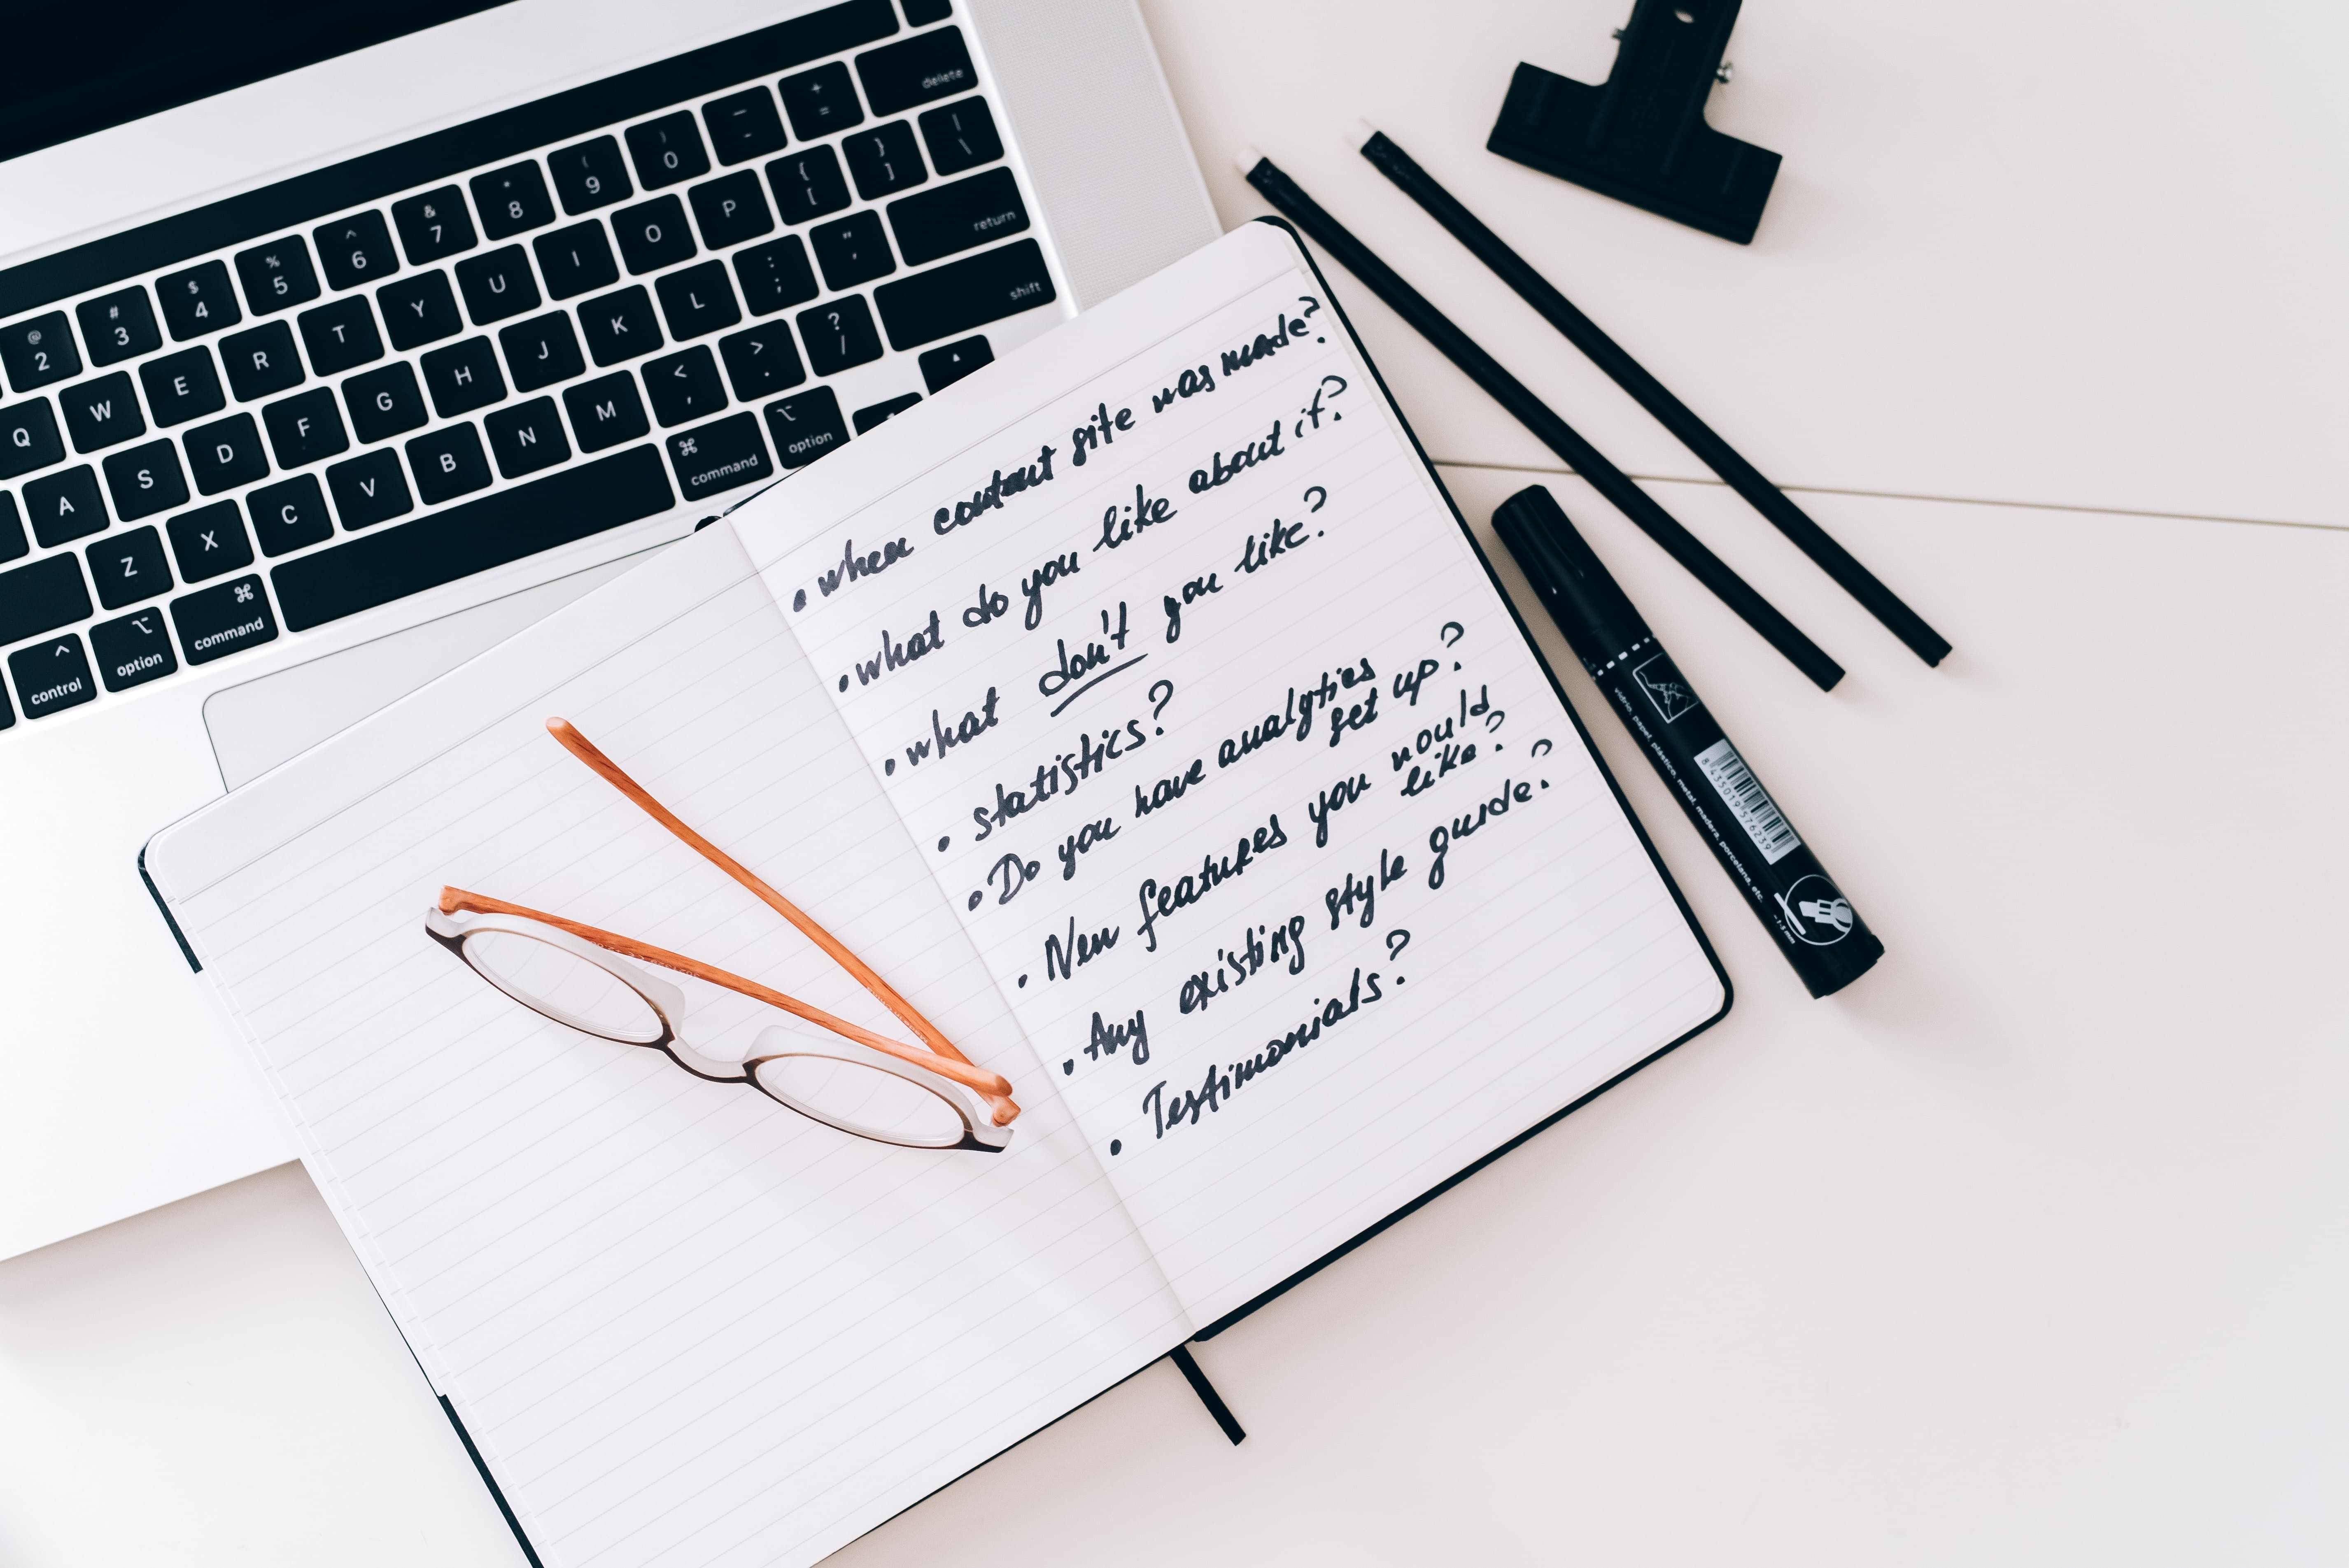 delete
@ 2 # 3 $ 4 % 5 ^ 6 & 7 * 8 ( 9 ) 0 _ - + =
Q W E R T Y U I O P { [ } ] | \
A S D F G H J K L : ; " ' return
Z X C V B N M < , > . ? / shift
^ control ⌥ option ⌘ command ⌘ command ⌥ option
• when content site was made?
• what do you like about it?
• what don't you like?
• statistics?
• Do you have analytics
set up?
• New features you would
like?
• Any existing style guide?
• Testimonials?
vidrio, papel, plástico, metal, madera, porcelana, etc.
8435019576239